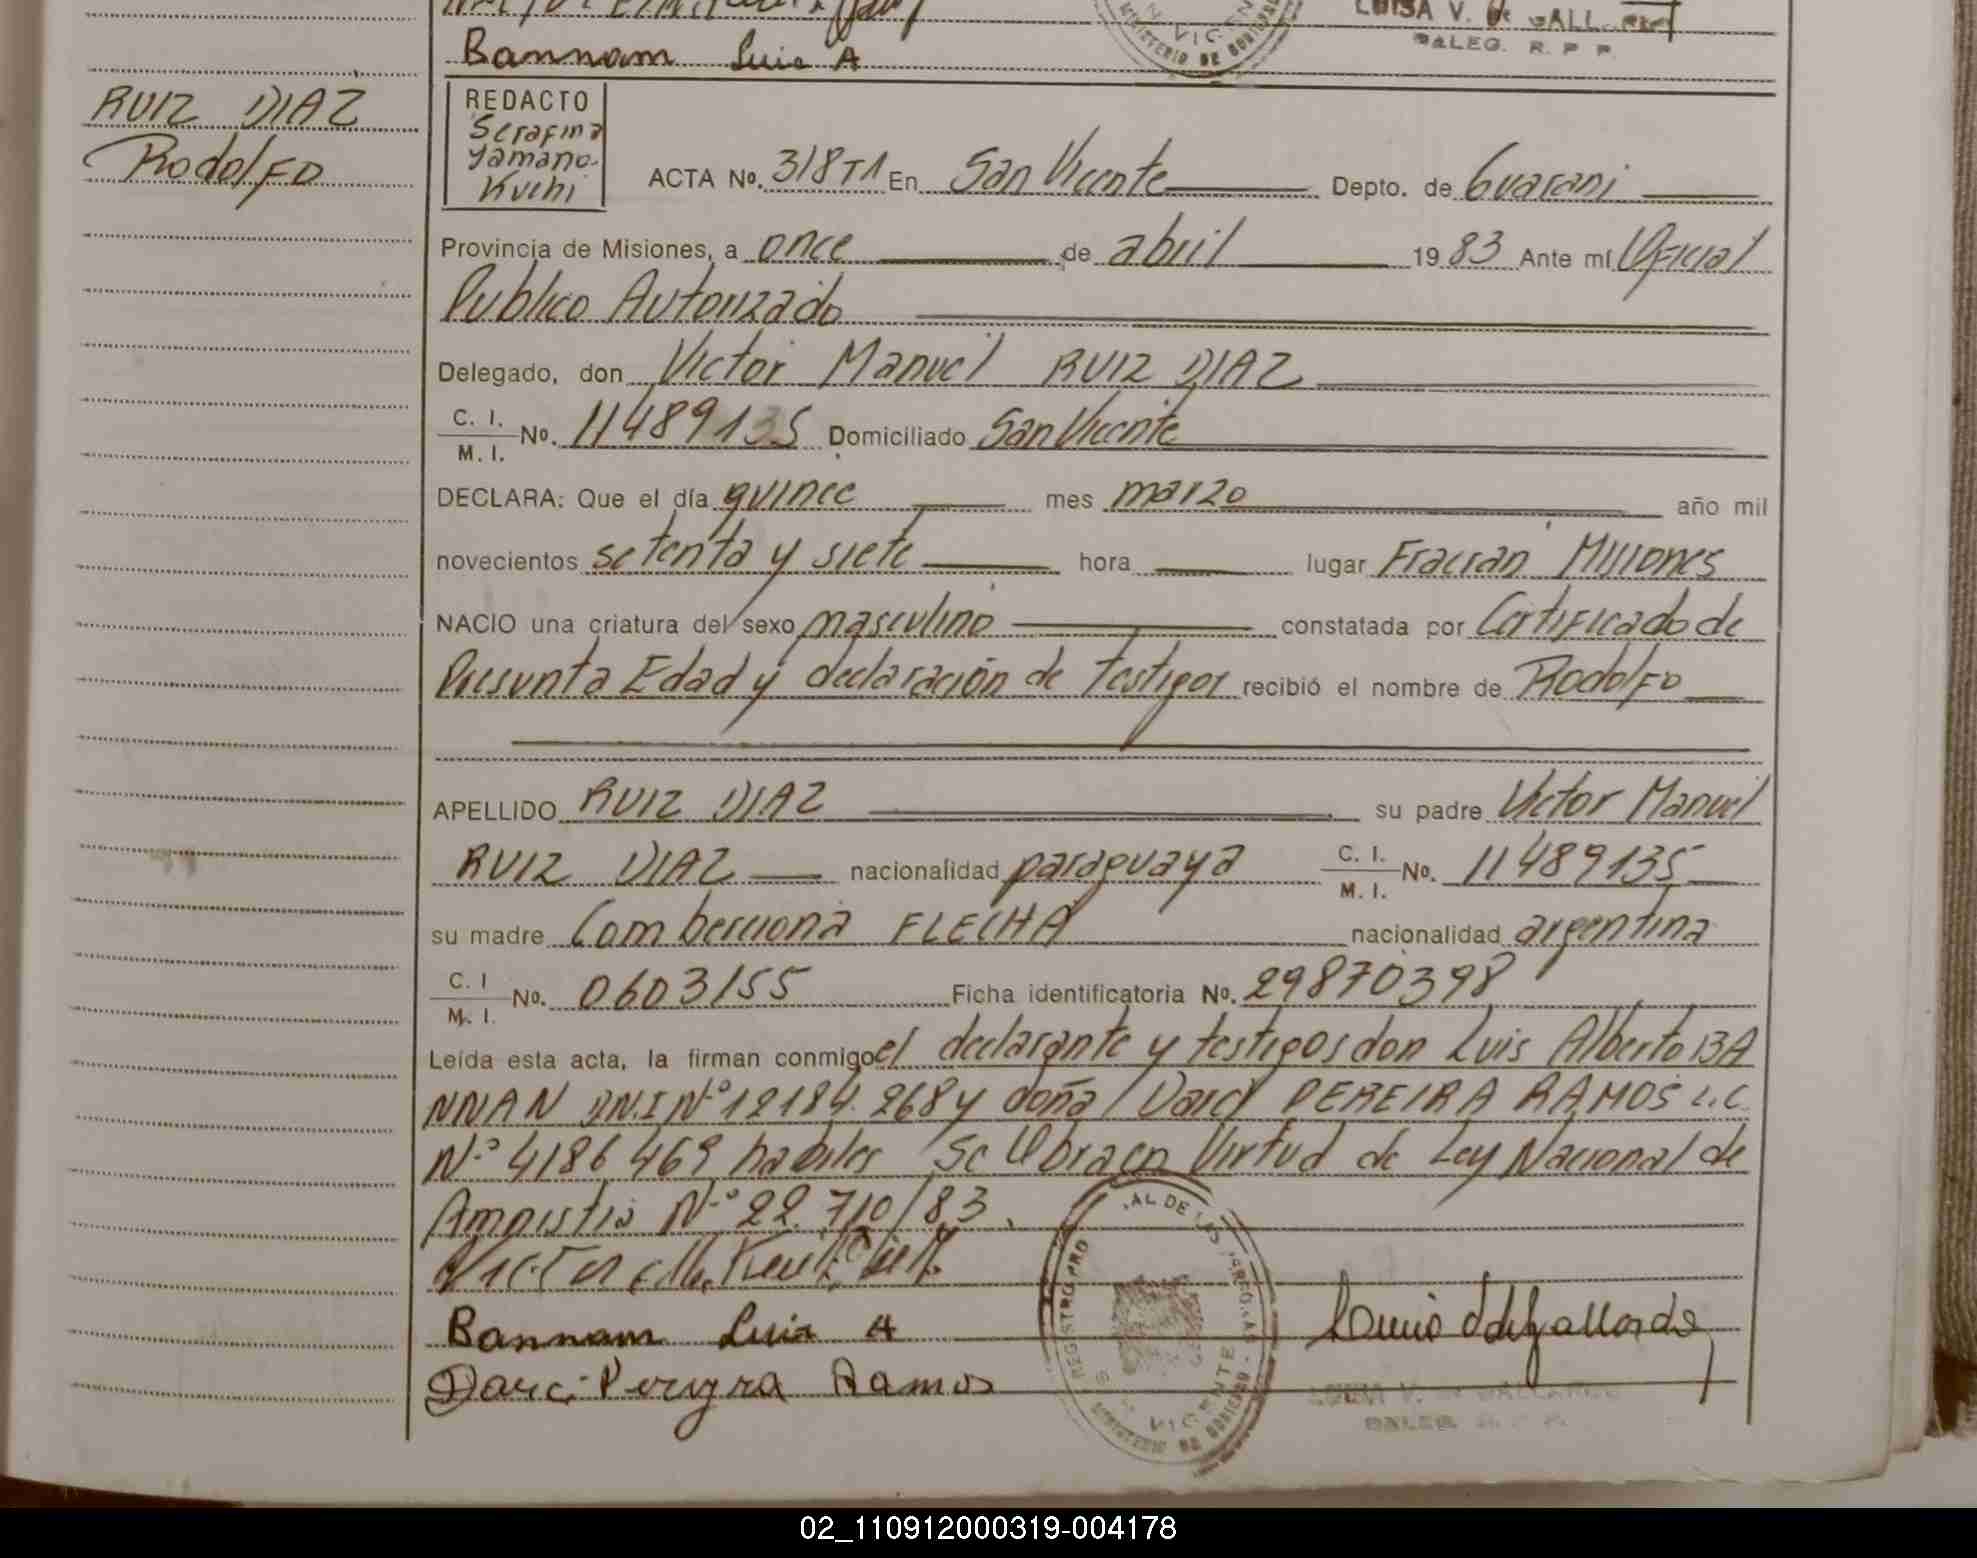 Bannam Luis A
LUISA V. de GALL
DALEG. R. P. P.
RUIZ DIAZ
Rodolfo
REDACTO
Serafina
Yamano
Kuchi
ACTA No. 318 T1 En San Vicente Depto. de Guarani
Provincia de Misiones, a once de abril 1983 Ante mí Oficial
Publico Autorizado
Delegado, don Victor Manuel RUIZ DIAZ
C. I. / M. I. No. 11489135 Domiciliado San Vicente
DECLARA: Que el día quince mes marzo año mil
novecientos setenta y siete hora lugar Fracran Misiones
NACIO una criatura del sexo masculino constatada por Certificado de
Presunta Edad y declaración de testigos recibió el nombre de Rodolfo
APELLIDO RUIZ DIAZ su padre Victor Manuel
RUIZ DIAZ nacionalidad paraguaya C. I. / M. I. No. 11489135
su madre Comberciona FLECHA nacionalidad argentina
C. I / M. I. No. 0603155 Ficha identificatoria No. 29870398
Leída esta acta, la firman conmigo el declarante y testigos don Luis Alberto BA
NNAN DN.I Nº 12184.268 y doña Darci PEREIRA RAMOS L.C.
Nº 4186469 habiles Se labra en Virtud de Ley Nacional de
Amnistia Nº 22.710/83.
Bannam Luis A
Darci Pereyra Ramos
REGISTRO PRO AL DE LAS
VICENTE
MINISTERIO DE GOBIERNO
DALEG. R. P. P.
02_110912000319-004178